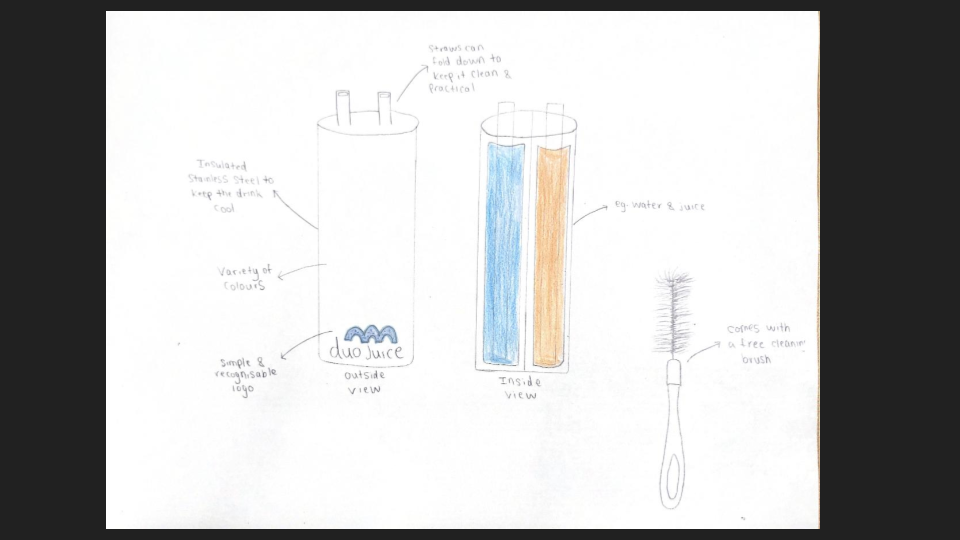 Straws can
fold down to
keep it clean &
practical
Insulated
Stainless Steel to
keep the drink
cool
Variety of
colours
simple &
recognisable
logo
duo Juice
outside
view
Inside
view
eg. water & juice
comes with
a free cleaning
brush